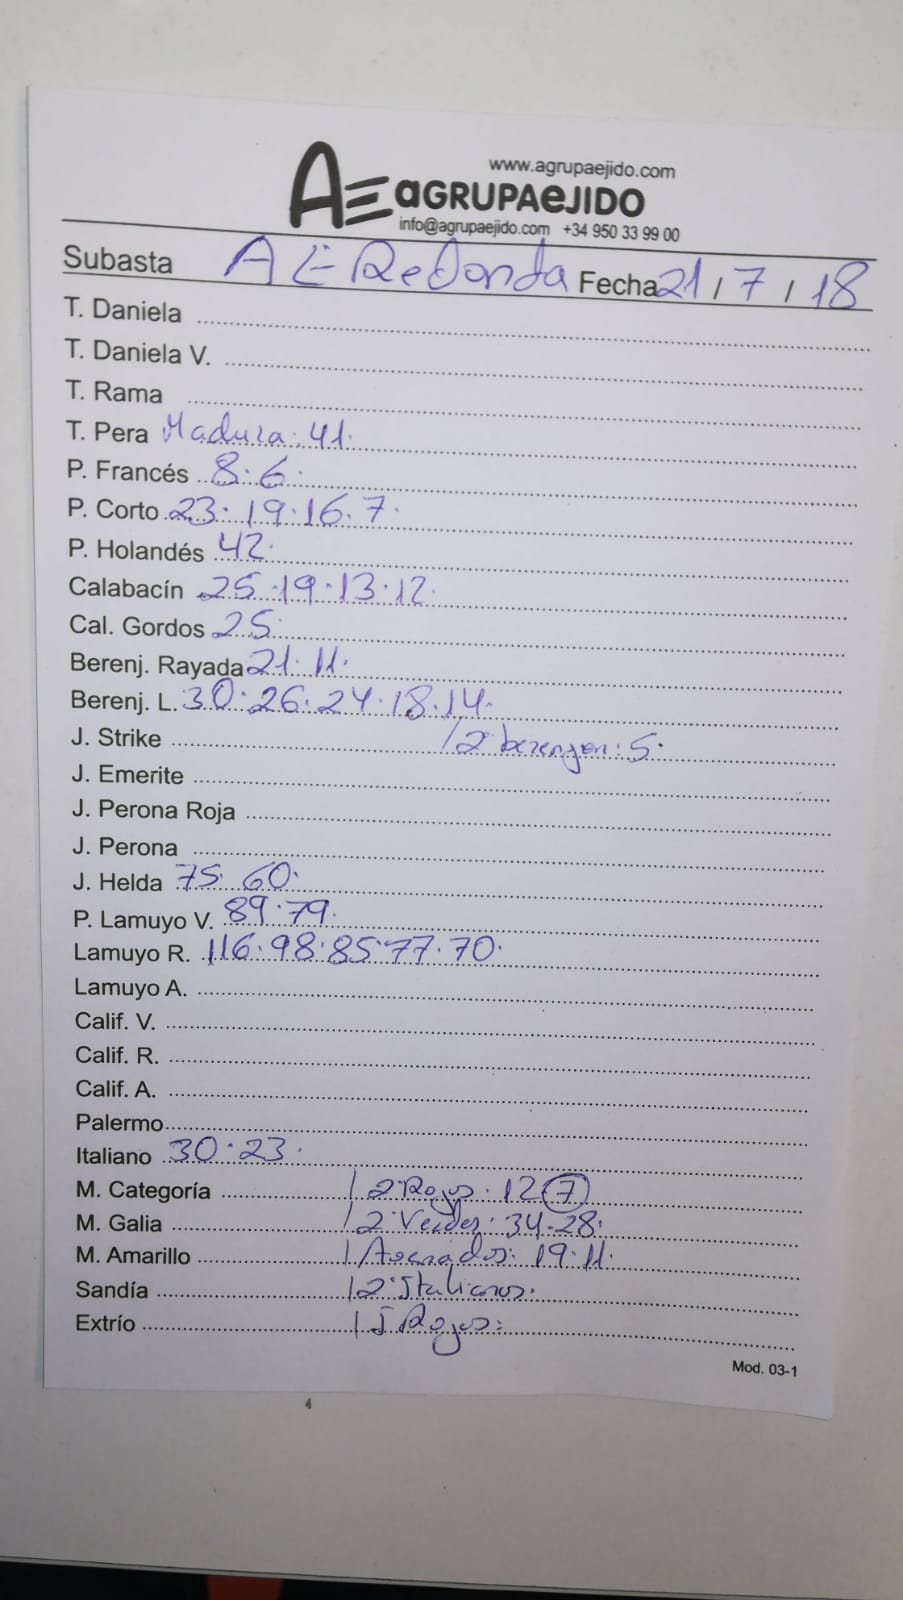 www.agrupaejido.com
AE aGRUPAeJIDO
info@agrupaejido.com +34 950 33 99 00
Subasta AE Redonda Fecha 21 / 7 / 18
T. Daniela
T. Daniela V.
T. Rama
T. Pera Madura: 41.
P. Francés 8.6.
P. Corto 23.19.16.7.
P. Holandés 42.
Calabacín 25.19.13.12.
Cal. Gordos 25.
Berenj. Rayada 21.11.
Berenj. L. 30.26.24.18.14.
J. Strike / 2ª berenjen: 5.
J. Emerite
J. Perona Roja
J. Perona
J. Helda 75. 60.
P. Lamuyo V. 89.79.
Lamuyo R. 116.98.85.77.70.
Lamuyo A.
Calif. V.
Calif. R.
Calif. A.
Palermo
Italiano 30.23.
M. Categoría / 2ª Rojos. 12 7
M. Galia / 2ª Verdes: 34.28.
M. Amarillo / Asurados: 19.11.
Sandía / 2ª Italianos.
Extrío / I Rojos:
Mod. 03-1